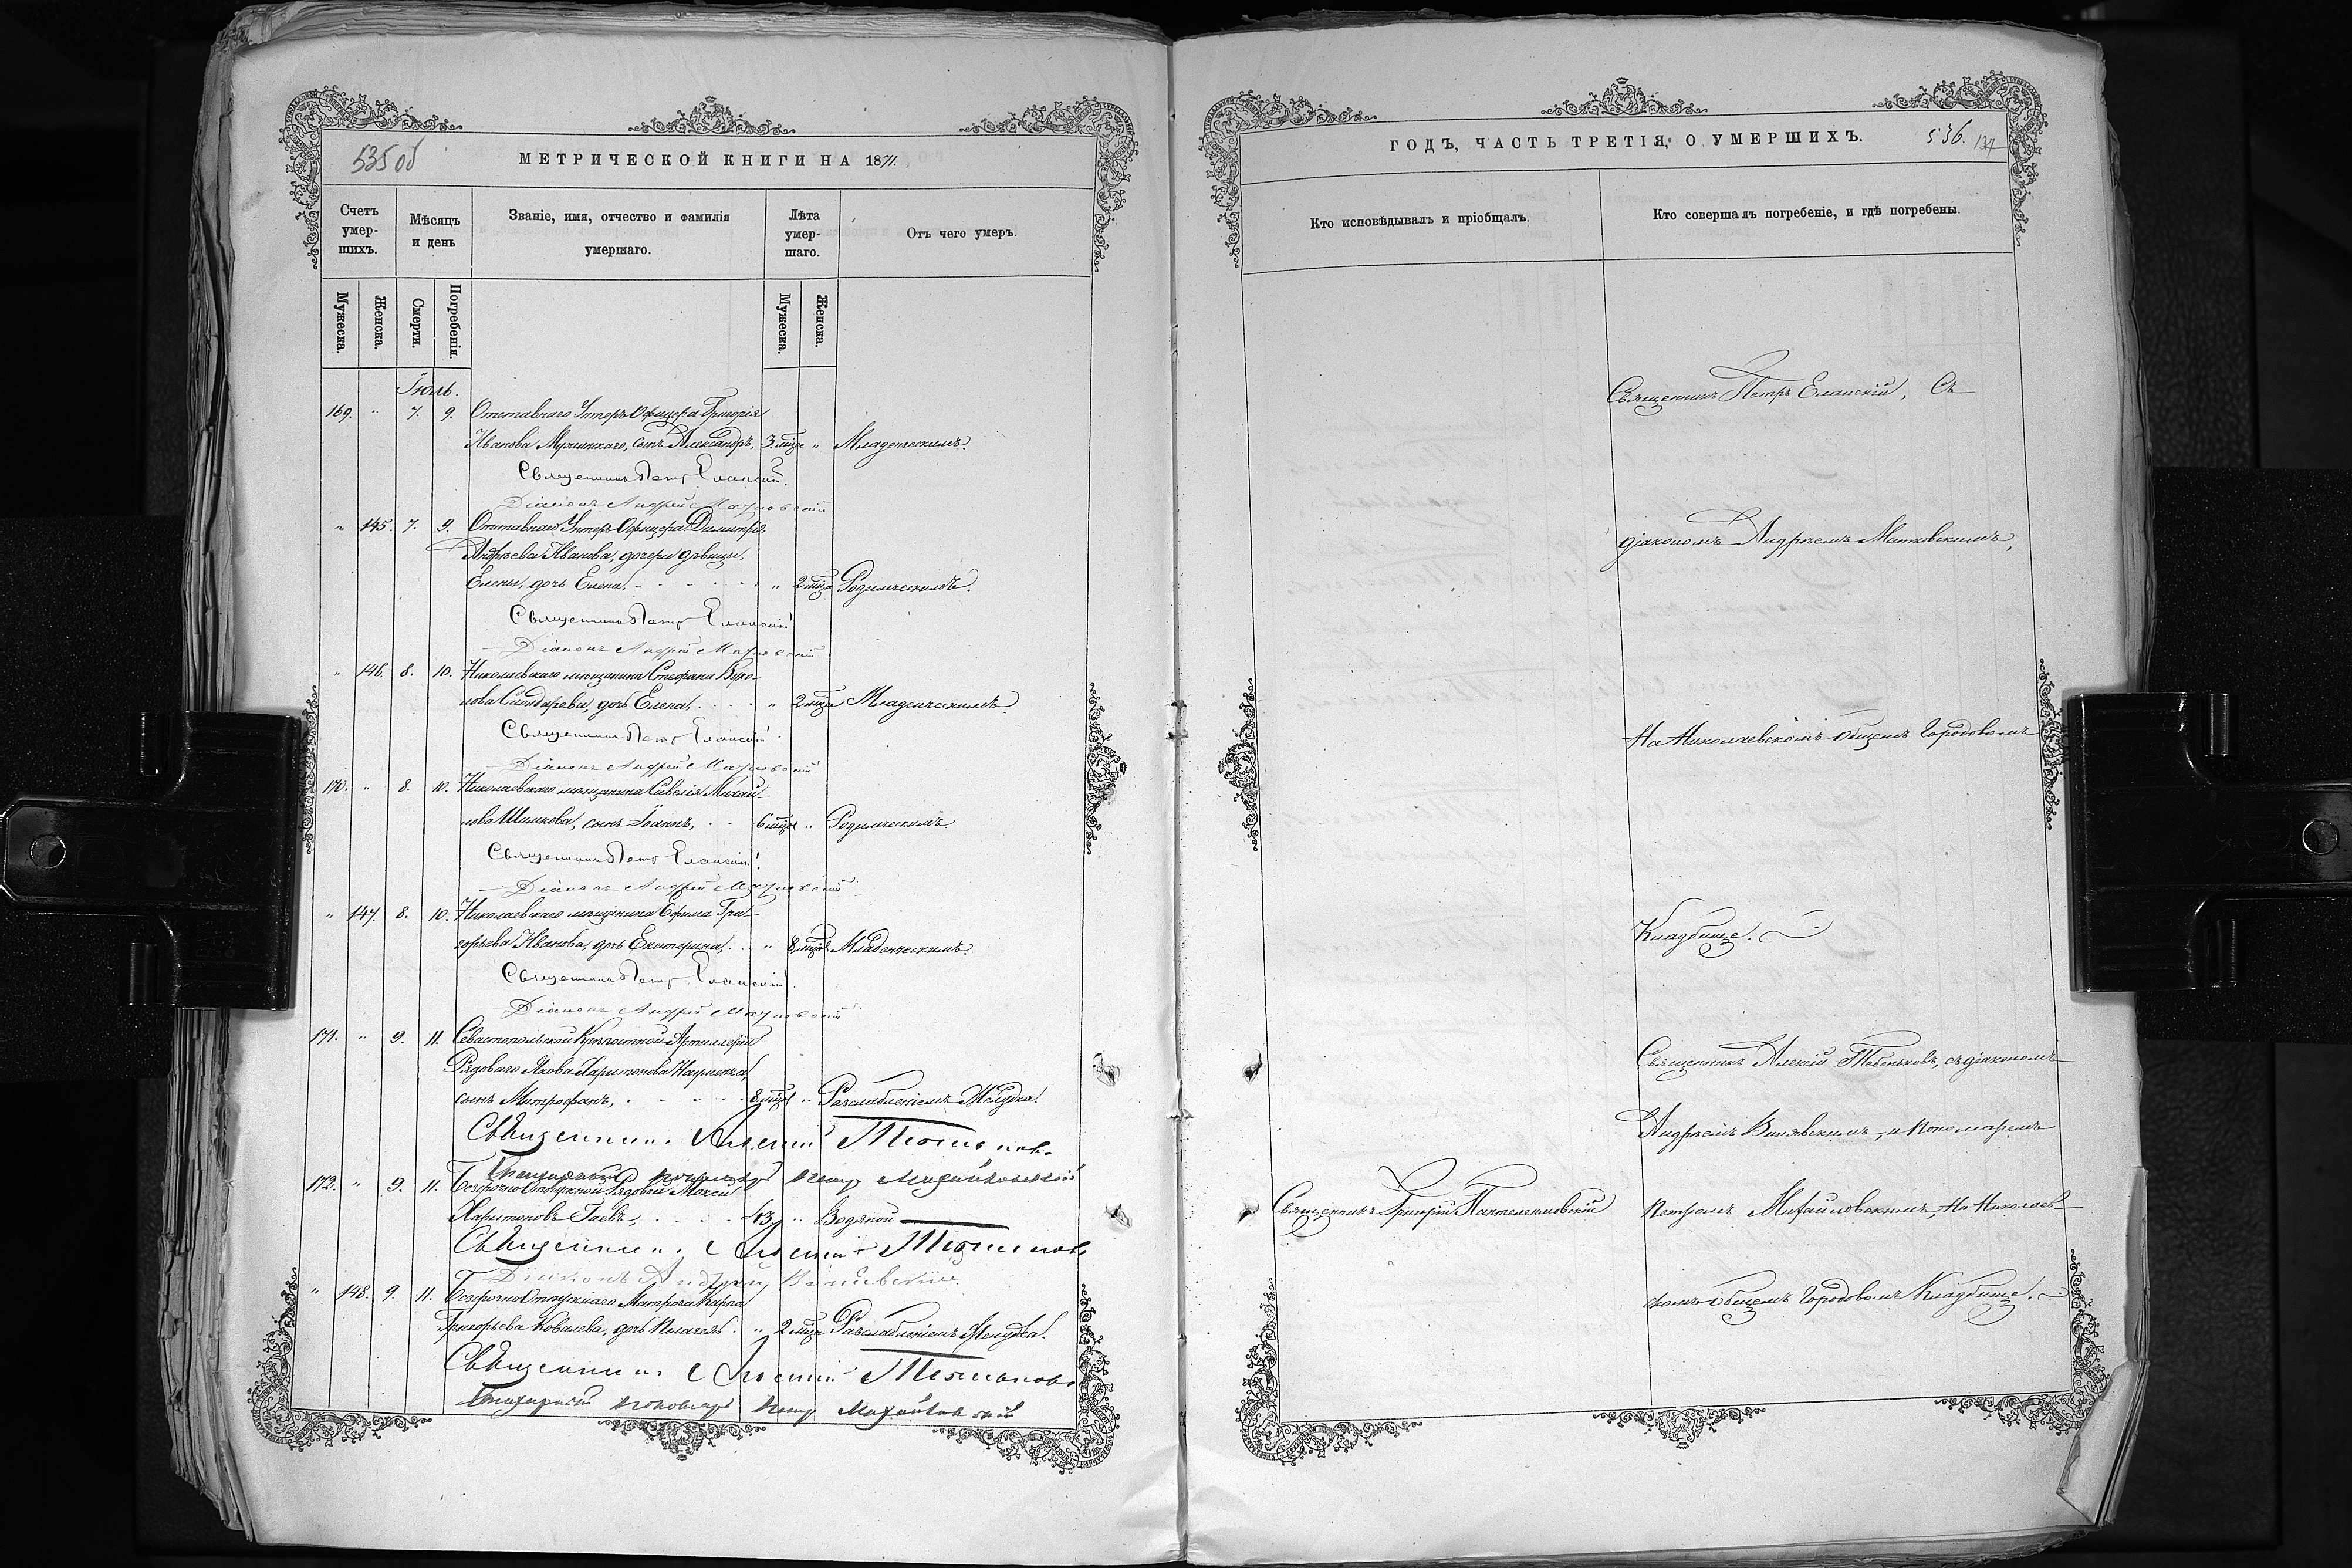 535 об
МЕТРИЧЕСКОЙ КНИГИ НА 1871.
Счетъ умер- шихъ.
Мѣсяцъ и день
Званіе, имя, отчество и фамилія умершаго.
Лѣта умер- шаго.
Отъ чего умеръ.
Мужеска.
Женска.
Смерти.
Погребенія.
Мужеска.
Женска.
Іюль.
169. " 7. 9. Отставнаго Унтеръ Офицера Григорія
Иванова сынъ Александръ, 3 мѣца " Младенческимъ.
Священникъ Петр Еланскій.
Діаконъ Андрей Матковскій
" 145. 7. 9. Отставнаго Унтеръ Офицера Димитрія
Андреева Иванова, дочери дѣвицы,
Елены, дочь Елена. " 2 мѣца Родимческимъ.
Священникъ Петр Еланскій
Діаконъ Андрей Матковскій
" 146. 8. 10. Николаевскаго мѣщанина Стефана Вуко-
лова дочь Елена. " 2 мѣца Младенческимъ.
Священникъ Петр Еланскій
Діаконъ Андрей Матковскій
170. " 8. 10. Николаевскаго мѣщанина Савелія Михай-
лова сынъ Іоаннъ, 6 мѣцов " Родимческимъ.
Священникъ Петр Еланскій
Діаконъ Андрей Матковскій
" 147. 8. 10. Николаевскаго мѣщанина Ефима Гри-
горьева Иванова, дочь Екатерина, " 8 мѣцов Младенческимъ.
Священникъ Петр Еланскій
Діаконъ Андрей Матковскій
171. " 9. 11. Севастопольской Крѣпостной Артиллеріи
Рядоваго Якова Харитонова Науменка,
сынъ Митрофанъ, 8 мѣцов " Разслабленіемъ Желудка.
Священникъ Алексій
Стихарный Пономарь Петр Михайловскій
172. " 9. 11. Безсрочно Отпускной Рядовой Моисей
Харитоновъ Гаевъ, 43 " Водяной
Священникъ Алексій
Діаконъ Андрей
" 148. 9. 11. Безсрочно Отпускнаго Матроса Карпа
Григорьева Ковалева, дочь Пелагея. " 2 мѣца Разслабленіемъ Желудка.
Священникъ Алексій
Стихарный Пономарь Петр Михайловскій
ГОДЪ, ЧАСТЬ ТРЕТІЯ, О УМЕРШИХЪ.
536.
Кто исповѣдывалъ и пріобщалъ.
Кто совершалъ погребеніе, и гдѣ погребены.
Священникъ Петръ Еланскій, Съ
діакономъ Андреемъ Матковскимъ,
На Николаевскомъ Общемъ Городовомъ
Кладбище.
Священникъ Алексій съ діакономъ
Андреемъ и пономаремъ
Священникъ Григорій Пантелеимовскій
Петромъ Михайловскимъ, На Николаев-
скомъ Общемъ Городовомъ Кладбище.